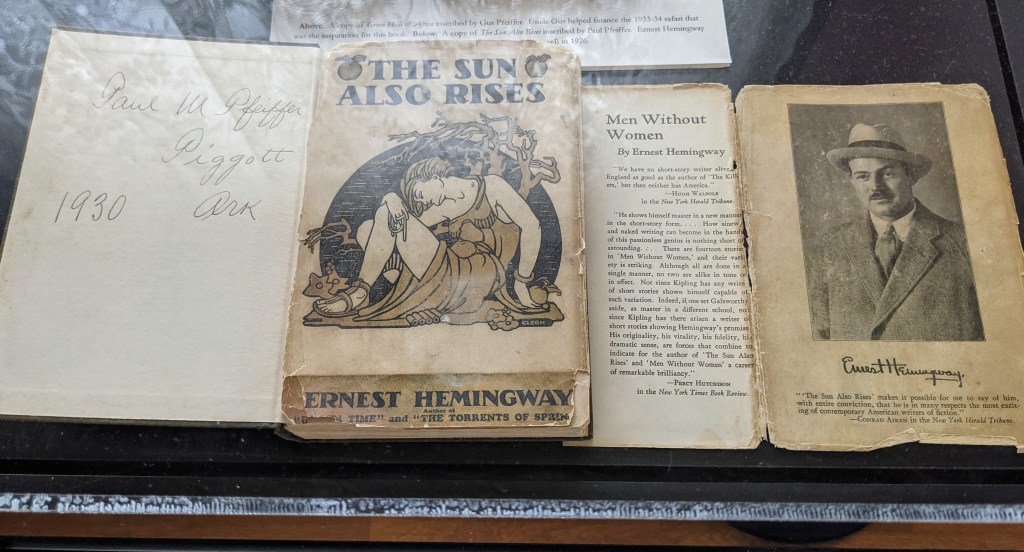 Above: A copy of Green Hills of Africa inscribed by Gus Pfeiffer. Uncle Gus helped finance the 1933-34 safari that
was the inspiration for this book. Below: A copy of The Sun Also Rises inscribed by Paul Pfeiffer. Ernest Hemingway
in 1926.
Paul M Pfeiffer
Piggott
1930 Ark
THE SUN
ALSO RISES
CLEON
ERNEST HEMINGWAY
Author of
TIME" and "THE TORRENTS OF SPRIN
Men Without
Women
By Ernest Hemingway
"We have no short-story writer alive
England as good as the author of 'The Kill
em,' but then neither has America."
—Hugh Walpole
in the New York Herald Tribune.
"He shows himself master in a new manner
in the short-story form. . . . How sinew
and naked writing can become in the hands
of this passionless genius is nothing short o
astounding. . . . There are fourteen stories
in 'Men Without Women,' and their vari
ety is striking. Although all are done in a
single manner, no two are alike in tone o
in effect. Not since Kipling has any write
of short stories shown himself capable o
such variation. Indeed, if one set Galsworthy
aside, as master in a different school, no
since Kipling has there arisen a writer o
short stories showing Hemingway's promise
His originality, his vitality, his fidelity, hi
dramatic sense, are forces that combine to
indicate for the author of 'The Sun Also
Rises' and 'Men Without Women' a career
of remarkable brilliancy."
—Percy Hutchison
in the New York Times Book Review.
Ernest Hemingway.
"'The Sun Also Rises' makes it possible for me to say of him,
with entire conviction, that he is in many respects the most excit-
ing of contemporary American writers of fiction."
—Conrad Aiken in the New York Herald Tribune.